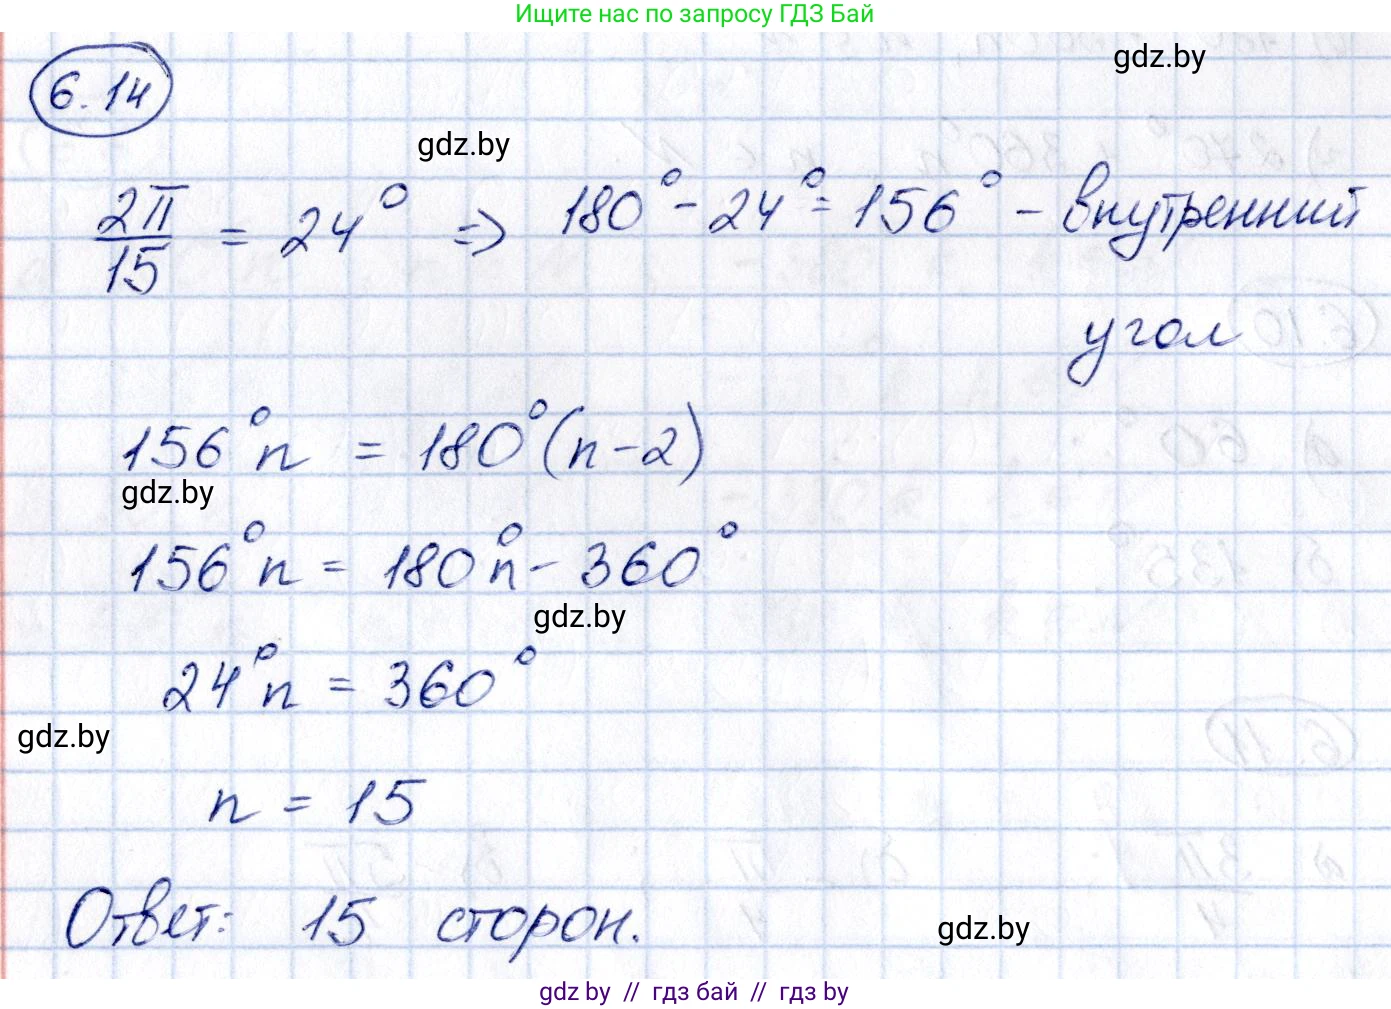 Ищите нас по запросу ГДЗ Бай
6.14
gdz.by
gdz.by
2π/15 = 24° ⇒ 180° - 24° = 156° - внутренний
угол
156°n = 180°(n-2)
gdz.by
156°n = 180°n - 360°
gdz.by
24°n = 360°
gdz.by
n = 15
Ответ: 15 сторон.
gdz.by
gdz by // гдз бай // гдз by